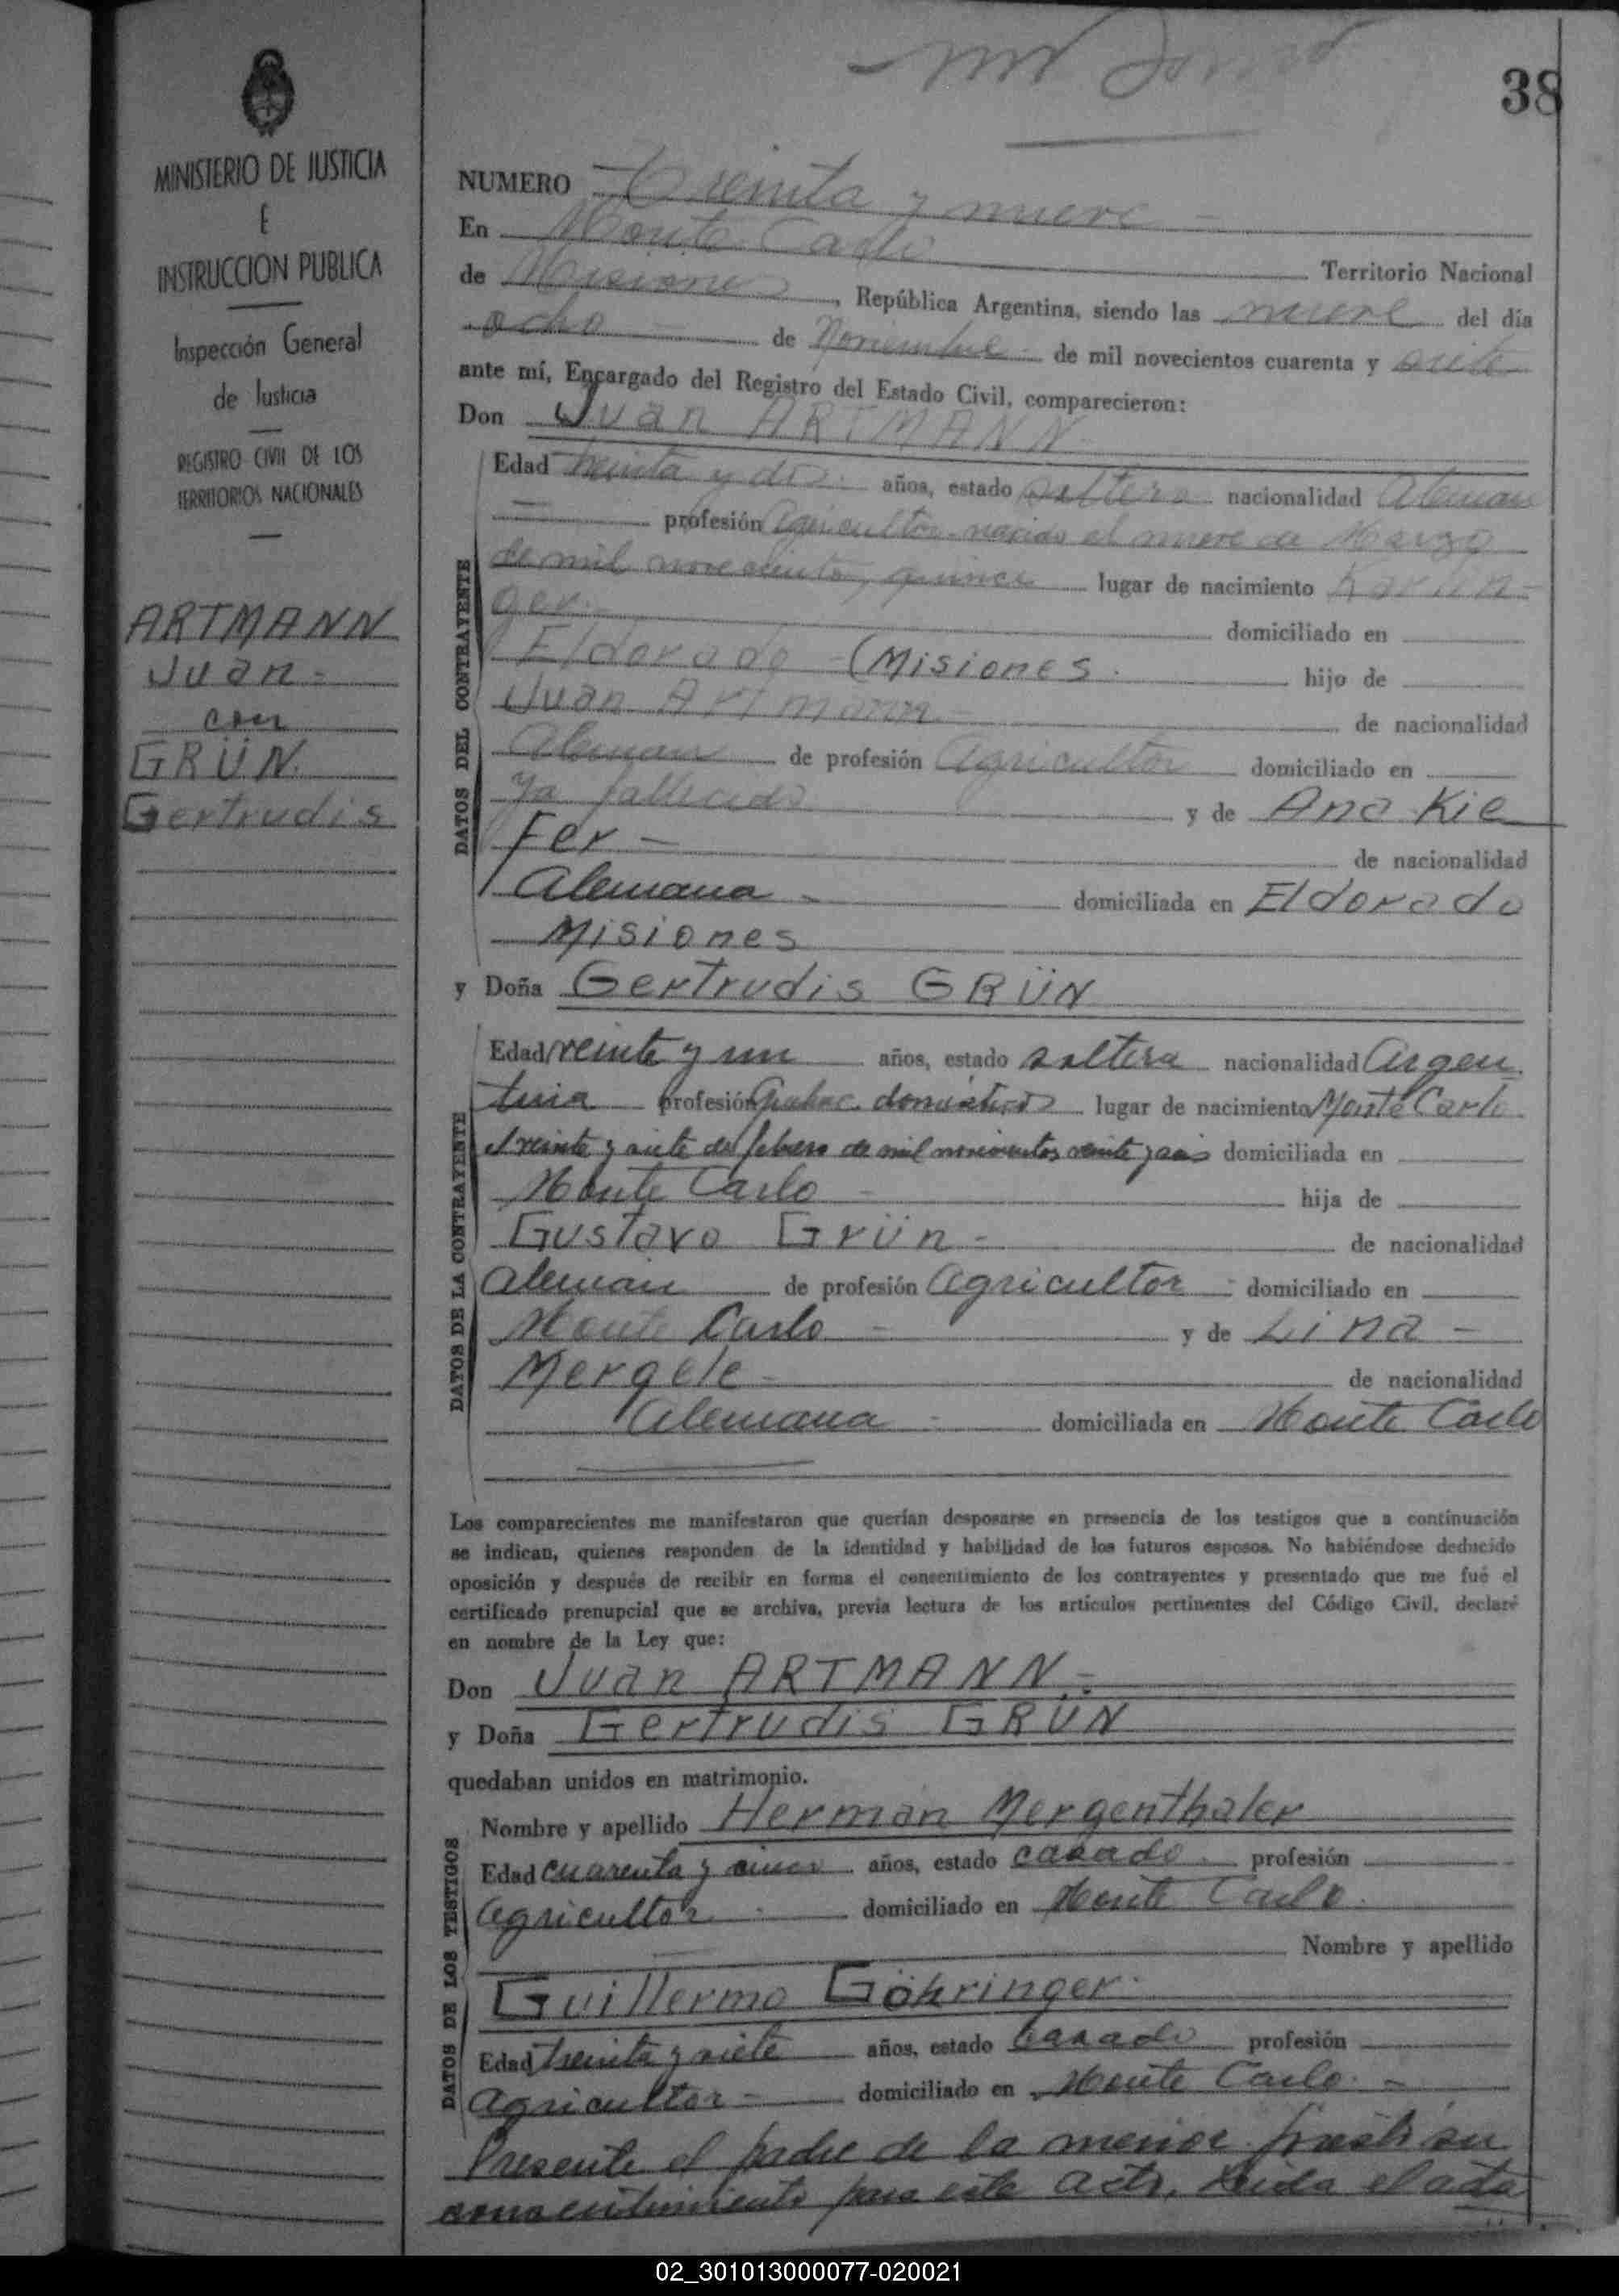 38
MINISTERIO DE JUSTICIA
E
INSTRUCCION PUBLICA
Inspección General
de Justicia
REGISTRO CIVIL DE LOS
TERRITORIOS NACIONALES
ARTMANN
Juan -
con
GRÜN.
Gertrudis
NUMERO Treinta y nueve -
En Monte Carlo Territorio Nacional
de Misiones, República Argentina, siendo las nueve del día
ocho de Noviembre de mil novecientos cuarenta y siete
ante mí, Encargado del Registro del Estado Civil, comparecieron:
Don Juan ARTMANN
DATOS DEL CONTRAYENTE
Edad treinta y dos años, estado soltero nacionalidad Aleman
profesión Agricultor - nacido el nueve de Marzo
de mil novecientos quince lugar de nacimiento
ger. domiciliado en
Eldorado - (Misiones. hijo de
Juan Artmann de nacionalidad
Aleman de profesión Agricultor domiciliado en
Ya fallecido y de Ana Kie
Fer - de nacionalidad
Alemana - domiciliada en Eldorado
Misiones
y Doña Gertrudis GRÜN
DATOS DE LA CONTRAYENTE
Edad veinte y un años, estado soltera nacionalidad Argen
tina profesión domésticos lugar de nacimiento Monte Carlo
el veinte y siete de febrero de mil novecientos veinte y seis domiciliada en
Monte Carlo - hija de
Gustavo Grün - de nacionalidad
Aleman de profesión Agricultor - domiciliado en
Monte Carlo - y de Lina -
Mergele - de nacionalidad
Alemana - domiciliada en Monte Carlo
Los comparecientes me manifestaron que querían desposarse en presencia de los testigos que a continuación
se indican, quienes responden de la identidad y habilidad de los futuros esposos. No habiéndose deducido
oposición y después de recibir en forma el consentimiento de los contrayentes y presentado que me fué el
certificado prenupcial que se archiva, previa lectura de los artículos pertinentes del Código Civil, declaré
en nombre de la Ley que:
Don Juan ARTMANN -
y Doña Gertrudis GRÜN
quedaban unidos en matrimonio.
DATOS DE LOS TESTIGOS
Nombre y apellido Herman Mergenthaler
Edad cuarenta y cinco años, estado casado profesión
Agricultor domiciliado en Monte Carlo.
Nombre y apellido
Guillermo Göhringer.
Edad treinta y siete años, estado Casado profesión
Agricultor - domiciliado en Monte Carlo. -
Presente el padre de la menor prestó su
consentimiento para este acto. Leida el acta
02_301013000077-020021